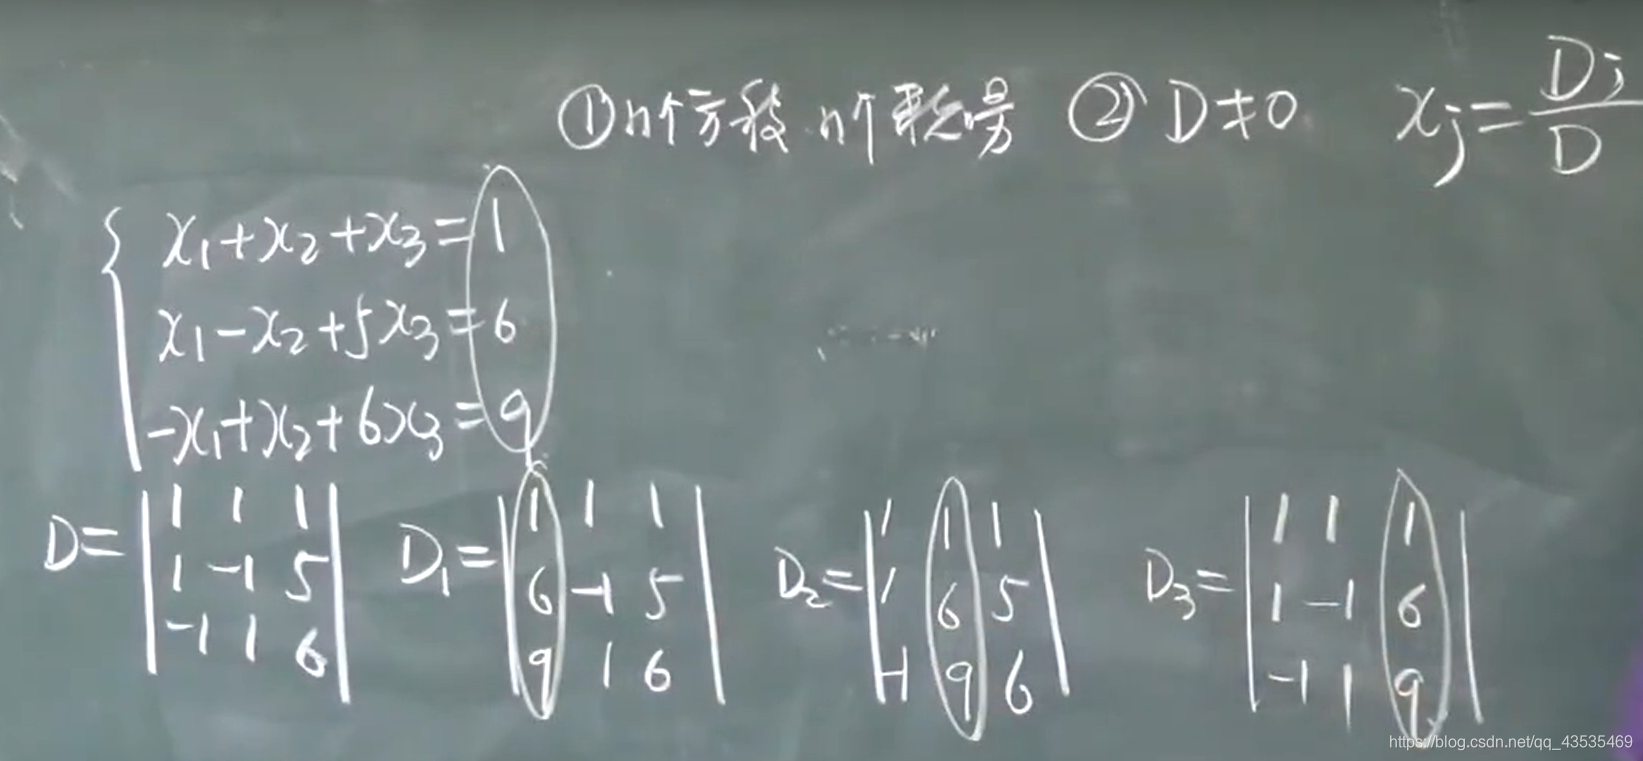 ①n个方程 n个未知量 ②D≠0 xj=Dj/D
x₁+x₂+x₃=1
x₁-x₂+5x₃=6
-x₁+x₂+6x₃=9
D= D₁= D₂= D₃=
1 1 1 1 1 1 1 1 1 1 1 1
1 -1 5 6 -1 5 1 6 5 1 -1 6
-1 1 6 9 1 6 -1 9 6 -1 1 9
https://blog.csdn.net/qq_43535469